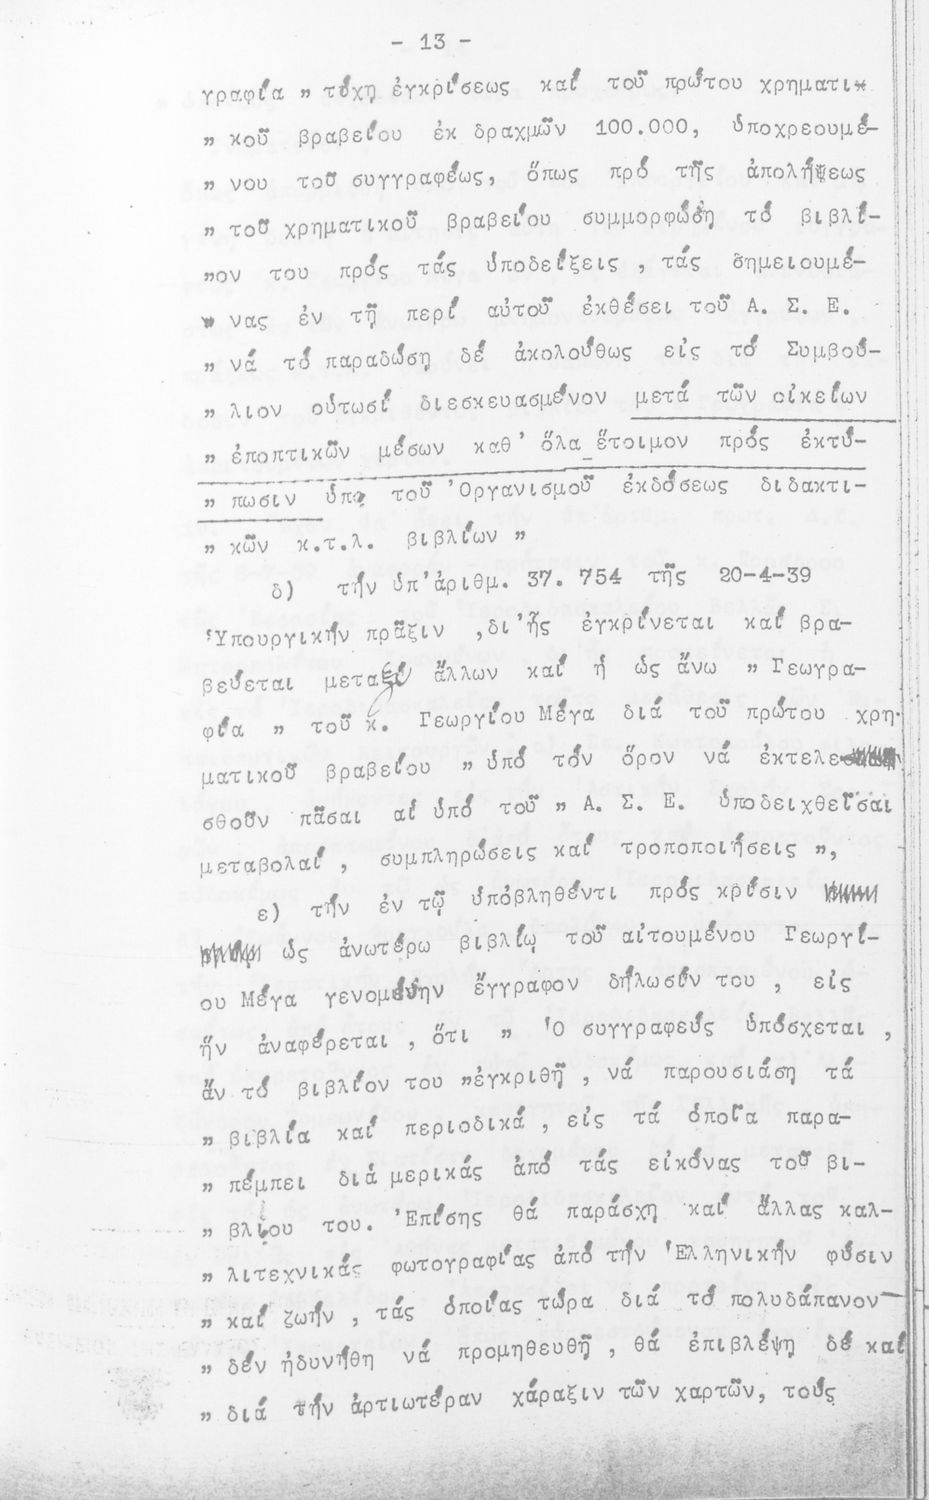 - 13 -
γραφία „ τύχῃ ἐγκρίσεως καί τοῦ πρώτου χρηματι-
„ κοῦ βραβείου ἐκ δραχμῶν 100.000, ὑποχρεουμέ-
„ νου τοῦ συγγραφέως, ὅπως πρό τῆς ἀπολήψεως
„ τοῦ χρηματικοῦ βραβείου συμμορφώσῃ τό βιβλί-
„ον του πρός τάς ὑποδείξεις , τάς σημειουμέ-
„ νας ἐν τῇ περί αὐτοῦ ἐκθέσει τοῦ Α. Σ. Ε.
„ νά τό παραδώσῃ δέ ἀκολούθως εἰς τό Συμβού-
„ λιον οὑτωσί διεσκευασμένον μετά τῶν οἰκείων
„ ἐποπτικῶν μέσων καθ' ὅλα ἕτοιμον πρός ἐκτύ-
„ πωσιν ὑπό τοῦ Ὀργανισμοῦ ἐκδόσεως διδακτι-
„ κῶν κ.τ.λ. βιβλίων „
δ) τήν ὑπ'ἀριθμ. 37. 754 τῆς 20-4-39
Ὑπουργικήν πρᾶξιν ,δι'ἧς ἐγκρίνεται καί βρα-
βεύεται μεταξύ ἄλλων καί ἡ ὡς ἄνω „ Γεωγρα-
φία „ τοῦ κ. Γεωργίου Μέγα διά τοῦ πρώτου χρη-
ματικοῦ βραβείου „ ὑπό τόν ὅρον νά ἐκτελε-
σθοῦν πᾶσαι αἱ ὑπό τοῦ „ Α. Σ. Ε. ὑποδειχθεῖσαι
μεταβολαί , συμπληρώσεις καί τροποποιήσεις „,
ε) τήν ἐν τῷ ὑποβληθέντι πρός κρίσιν
ὡς ἀνωτέρω βιβλίῳ τοῦ αἰτουμένου Γεωργί-
ου Μέγα γενομένην ἔγγραφον δήλωσίν του , εἰς
ἥν ἀναφέρεται , ὅτι „ Ὁ συγγραφεύς ὑπόσχεται ,
ἄν τό βιβλίον του „ἐγκριθῇ , νά παρουσιάσῃ τά
„ βιβλία καί περιοδικά , εἰς τά ὁποῖα παρα-
„ πέμπει διά μερικάς ἀπό τάς εἰκόνας τοῦ βι-
„ βλίου του. Ἐπίσης θά παράσχῃ καί ἄλλας καλ-
„ λιτεχνικάς φωτογραφίας ἀπό τήν Ἑλληνικήν φύσιν
„ καί ζωήν , τάς ὁποίας τώρα διά τό πολυδάπανον
„ δέν ἠδυνήθη νά προμηθευθῇ , θά ἐπιβλέψῃ δέ καί
„ διά τήν ἀρτιωτέραν χάραξιν τῶν χαρτῶν, τούς